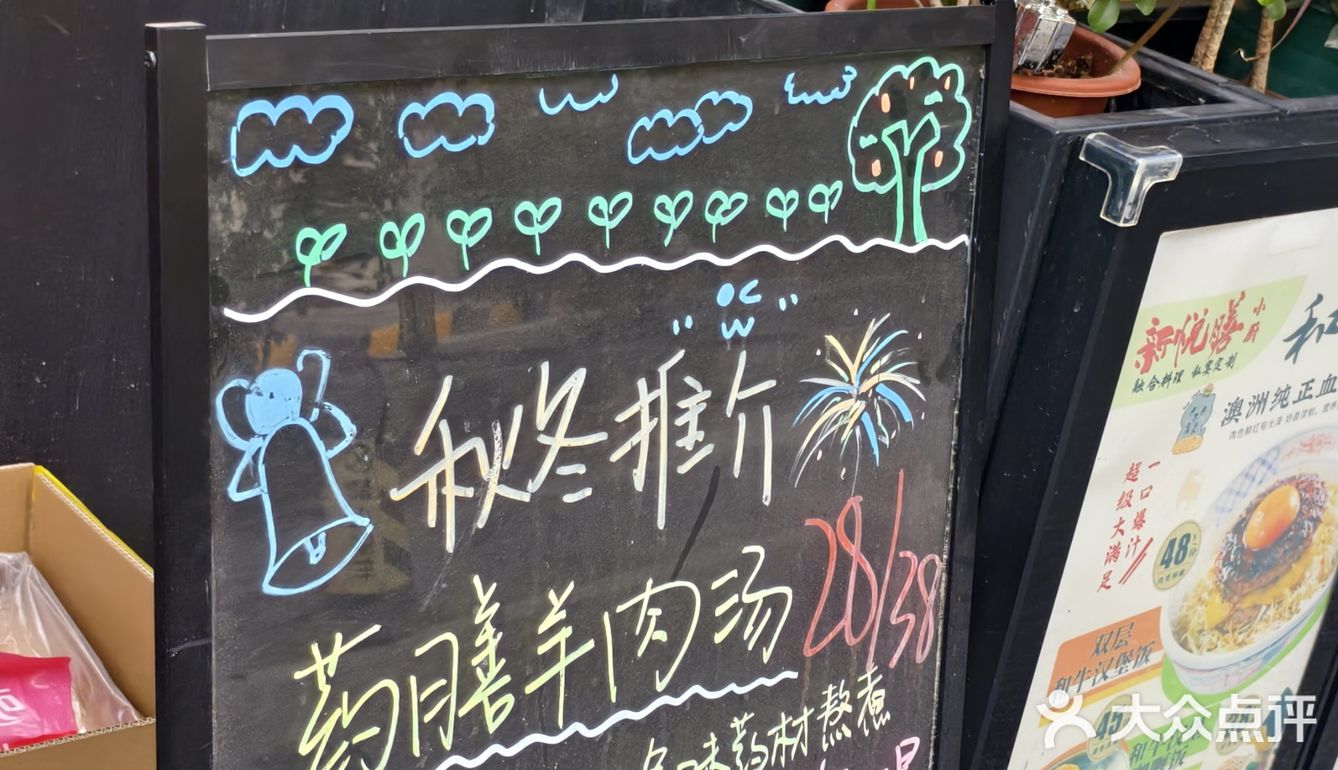 秋冬推介
药膳羊肉汤 28/38
味药材熬煮
新悦膳 小厨
融合料理 私宴定制
和
澳洲纯正血
一口爆汁
超级大满足
48
双层
和牛汉堡饭
大众点评